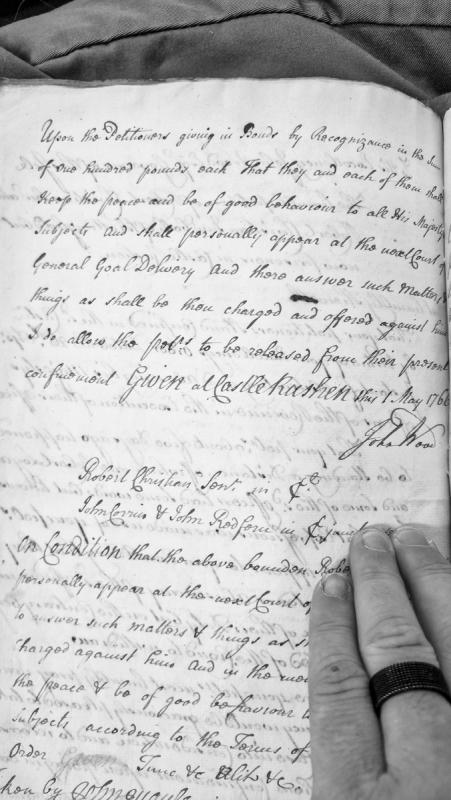 Upon the Petitioners giving in Bonds by Recognizance in the
of one hundred pounds each That they and each of them shall
keep the peace and be of good behaviour to all His Majestys
Subjects and shall personally appear at the next Court of
General Goal Delivery and there answer such Matters &
things as shall be then charged and offered against them
I do allow the petrs to be released from their present
confinement Given at Castle Rushen this 1. May 1766
John Wood
Robert Christian Senr. in
John Corrin & John Redferne in
On Condition that the above bounden
personally appear at the next Court of
to answer such matters & things as
Charged against him and in the
the peace & be of good behaviour
Subjects according to the Terms of
Order Given June &c
by